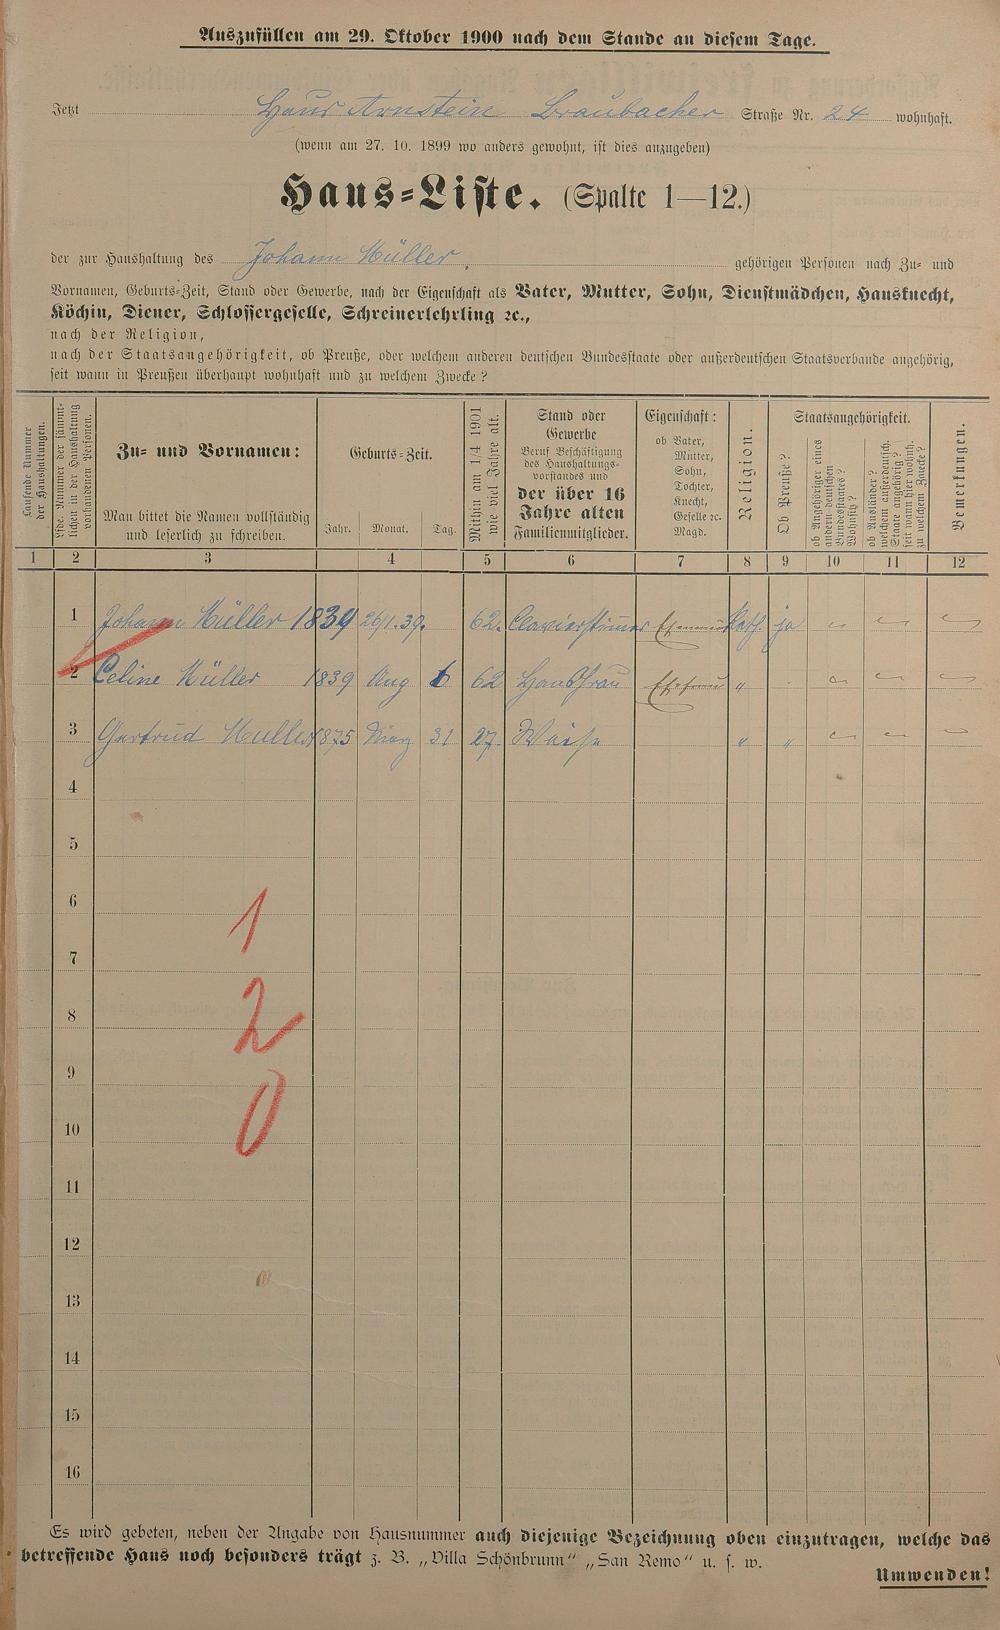 Auszufüllen am 29. Oktober 1900 nach dem Stande an diesem Tage.
Jetzt Haus Arnstein Braubacher Straße Nr. 24 wohnhaft.
(wenn am 27. 10. 1899 wo anders gewohnt, ist dies anzugeben)
Haus-Liste. (Spalte 1—12.)
der zur Haushaltung des Johann Müller. gehörigen Personen nach Zu- und
Vornamen, Geburts-Zeit, Stand oder Gewerbe, nach der Eigenschaft als Vater, Mutter, Sohn, Dienstmädchen, Hausknecht,
Köchin, Diener, Schlossergeselle, Schreinerlehrling ꝛc.,
nach der Religion,
nach der Staatsangehörigkeit, ob Preuße, oder welchem anderen deutschen Bundesstaate oder außerdeutschen Staatsverbande angehörig,
seit wann in Preußen überhaupt wohnhaft und zu welchem Zwecke?
Laufende Nummer
der Haushaltungen.
Lfde. Nummer der sämmt-
lichen in der Haushaltung
vorhandenen Personen.
Zu- und Vornamen:
Man bittet die Namen vollständig
und leserlich zu schreiben.
Geburts-Zeit.
Jahr. Monat. Tag.
Mithin am 1/4 1901
wie viel Jahre alt.
Stand oder
Gewerbe
Beruf Beschäftigung
des Haushaltungs-
vorstandes und
der über 16
Jahre alten
Familienmitglieder.
Eigenschaft:
ob Vater,
Mutter,
Sohn,
Tochter,
Knecht,
Geselle ꝛc.
Magd.
Religion.
Staatsangehörigkeit.
Ob Preuße?
ob Angehöriger eines
andern deutschen
Bundesstaates?
Wohnsitz?
ob Ausländer?
welchem außerdeutsch.
Staate angehörig?
seit wann hier wohnh.
zu welchem Zwecke?
Bemerkungen.
1 2 3 4 5 6 7 8 9 10 11 12
1 Johann Müller 1839 26/1. 39. 62. Clavierstimmer Ehemann Kath. ja
2 Celine Müller 1839 Aug 6 62 Hausfrau Ehefrau "
3 Gertrud Muller 1875 März 31 27. Waise " "
4
5
6
1
7
8
2
9
10
0
11
12
13
14
15
16
Es wird gebeten, neben der Angabe von Hausnummer auch diejenige Bezeichnung oben einzutragen, welche das
betreffende Haus noch besonders trägt z. B. „Villa Schönbrunn“ „San Remo“ u. s. w.
Umwenden!